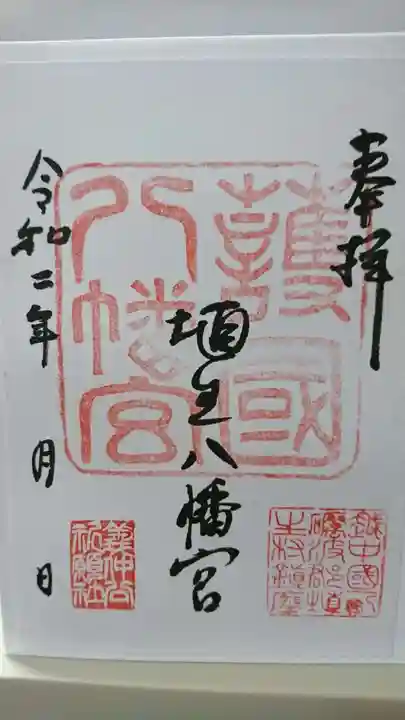 奉拝
護國八幡宮
埴生八幡宮
越中國
礪波郡埴
生村鎮座
義仲公
祈願社
令和二年 月 日